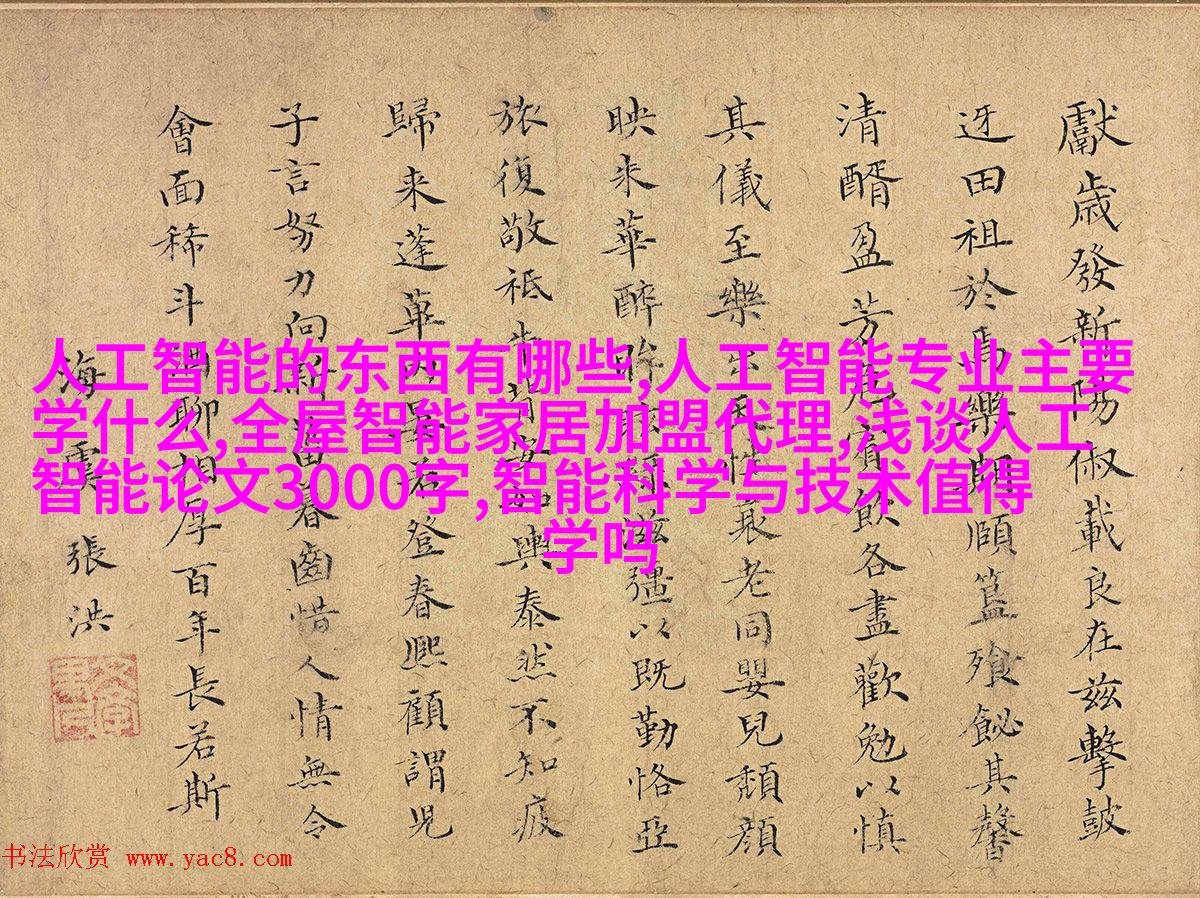 獻歲發新陽俶載良在兹擊鼓
迓田祖於焉樂期頤簋飱飶其馨
清醑盈芳卮賓飲各盡歡勉以慎
其儀至樂出真性衰老同嬰兒頹顏
映来華醉滋彊以既勤恪亞
旅復敬祗輿泰然不知疲
歸来蓬蓽若登春熙顧謂兒
子言努力向新畬春窗惜人情無令
會面稀斗酒聊相厚百年長若斯
海虞張洪
人工智能的东西有哪些,人工智能专业主要
学什么,全屋智能家居加盟代理,浅谈人工
智能论文3000字,智能科学与技术值得
学吗
书法欣赏 www.yac8.com